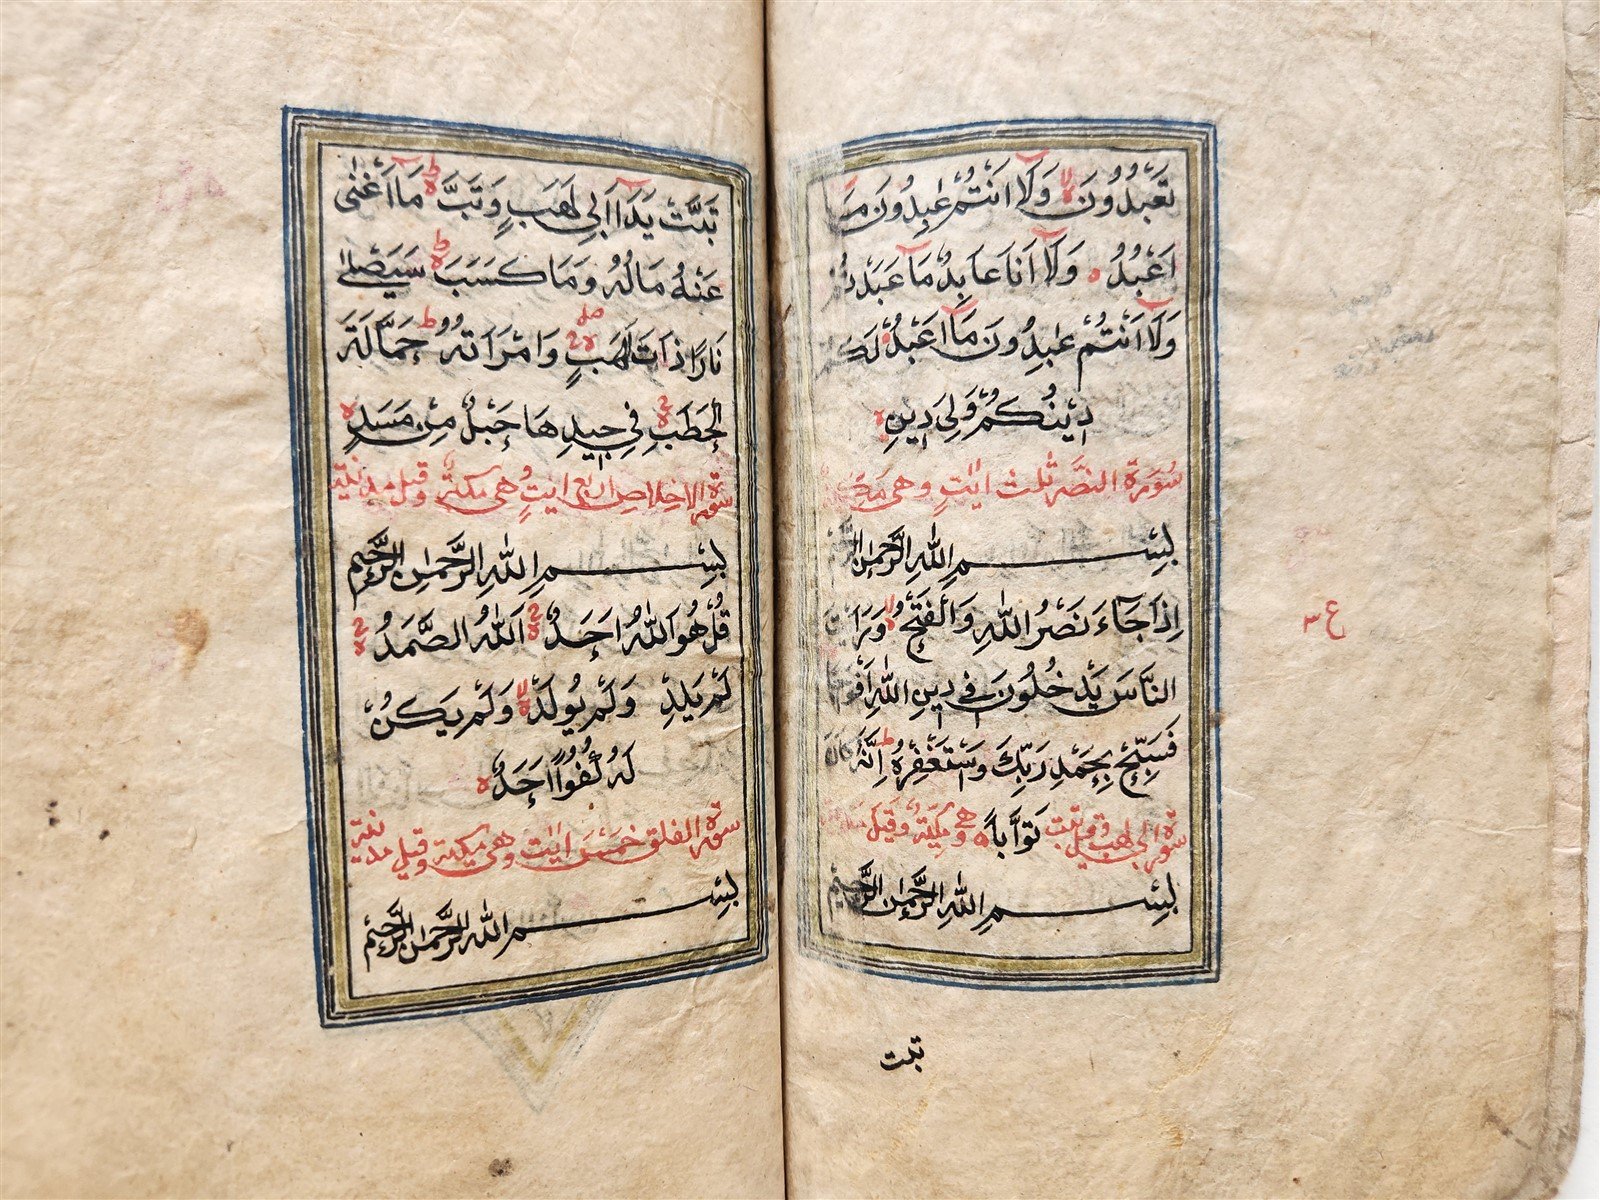 تَعْبُدُونَ لا وَلَا اَنْتُمْ عٰبِدُونَ مَا
اَعْبُدُ ه وَلَا اَنَا عَابِدٌ مَا عَبَدْتُمْ
وَلَا اَنْتُمْ عٰبِدُونَ مَا اَعْبُدُ ه لَكُمْ
دِيْنُكُمْ وَلِىَ دِيْنِ ه
سُوْرَة النصْر ثلث اٰيٰتٍ وهى
بِسْمِ اللّٰهِ الرَّحْمٰنِ الرَّحِيْمِ
اِذَا جَآءَ نَصْرُ اللّٰهِ وَالْفَتْحُ لا وَرَاَيْتَ
النَّاسَ يَدْخُلُوْنَ فِى دِيْنِ اللّٰهِ
فَسَبِّحْ بِحَمْدِ رَبِّكَ وَاسْتَغْفِرْهُ ط اِنَّهُ كَانَ
تَوَّابًا ه
سورة ابى لهب وقيل تبت وهى مكية وقيل
بِسْمِ اللّٰهِ الرَّحْمٰنِ الرَّحِيْمِ
تبت
تَبَّتْ يَدَا اَبِى لَهَبٍ وَتَبَّ ط مَا اَغْنٰى
عَنْهُ مَالُهُ وَمَا كَسَبَ ط سَيَصْلٰى
نَارًا ذَاتَ لَهَبٍ وَامْرَاَتُهُ ط حَمَّالَةَ
الْحَطَبِ فِى جِيْدِهَا حَبْلٌ مِنْ مَسَدٍ ه
سورة الاخلاص اربع اٰيٰتٍ وهى مكية وقيل مدنية
بِسْمِ اللّٰهِ الرَّحْمٰنِ الرَّحِيْمِ
قُلْ هُوَ اللّٰهُ اَحَدٌ اَللّٰهُ الصَّمَدُ
لَمْ يَلِدْ وَلَمْ يُوْلَدْ لا وَلَمْ يَكُنْ
لَهُ كُفُوًا اَحَدٌ ه
سورة الفلق خمس اٰيٰت وهى مكية وقيل مدنية
بِسْمِ اللّٰهِ الرَّحْمٰنِ الرَّحِيْمِ